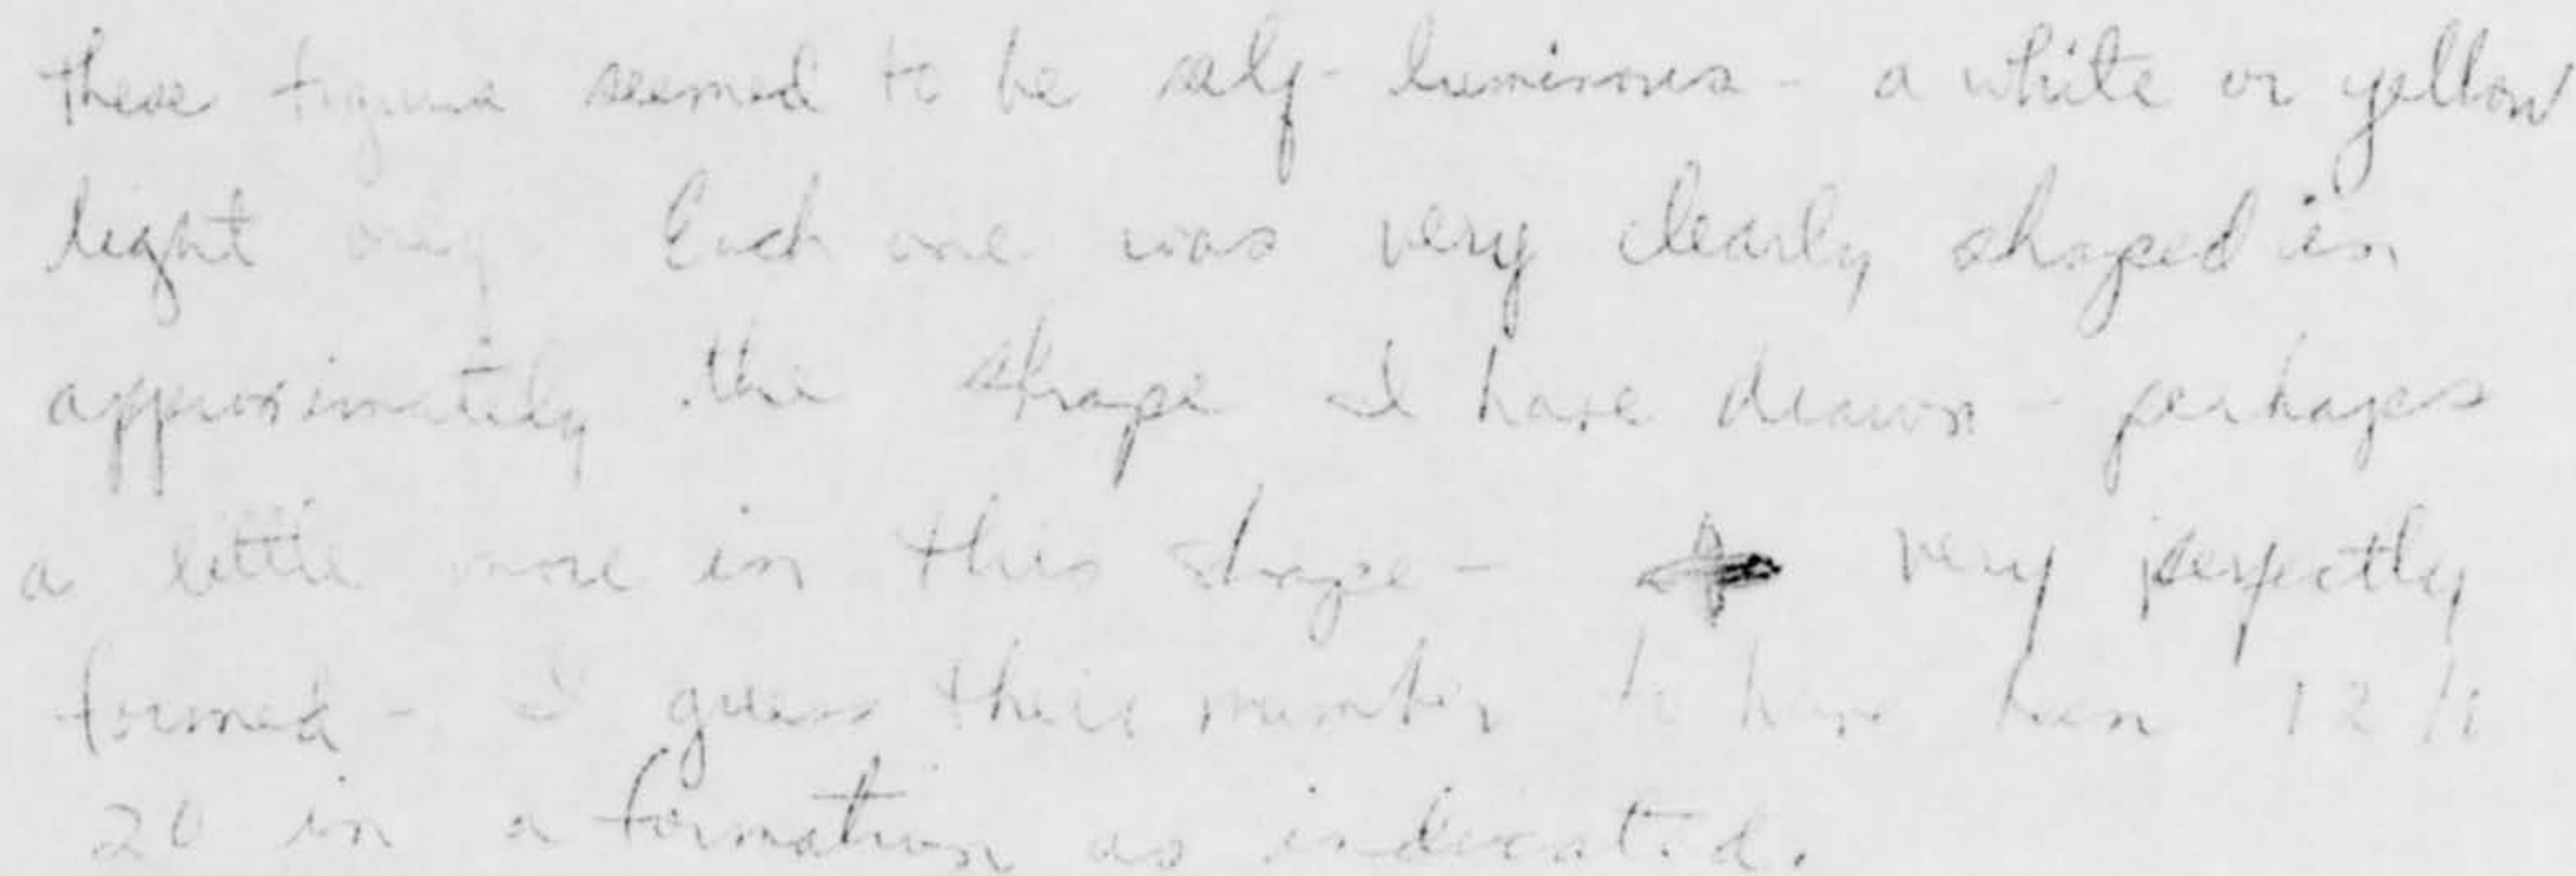 These figures seemed to be self-luminous - a white or yellow
light only. Each one was very clearly shaped in
approximately the shape I have drawn - perhaps
a little more in this shape - very perfectly
formed - I guess their number to have been 12 to
20 in a formation as indicated.